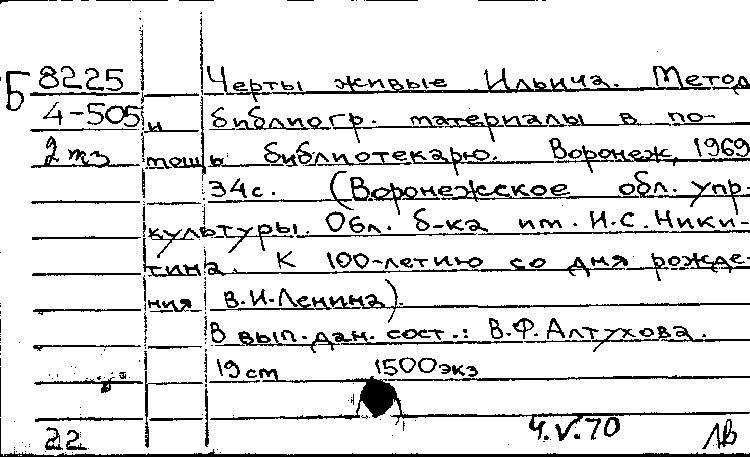 Б 8225 Черты живые Ильича. Метод
4-505 и библиогр. материалы в по-
2 тз мощь библиотекарю. Воронеж, 1969
34с. (Воронежское обл. упр.
культуры. Обл. б-ка им. И.С. Ники-
тина. К 100-летию со дня рожде-
ния В.И. Ленина).
В вып. дан. сост.: В.Ф. Алтухова.
19 cm 1500 экз
22 4.V.70